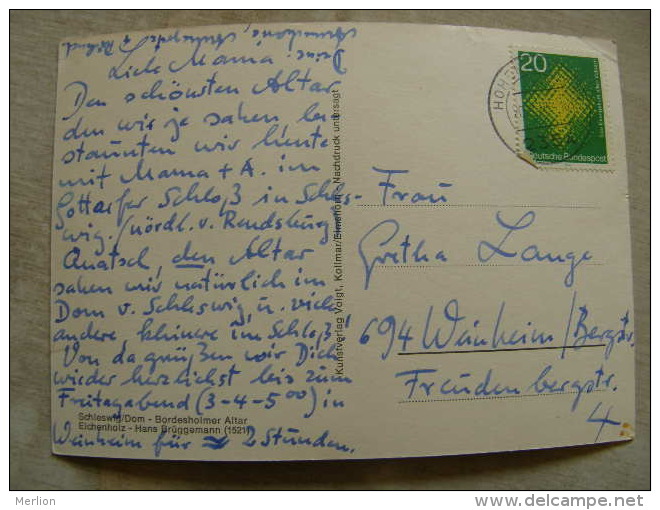 Liebe Mama!
Den schönsten Altar
den wir je sahen be
staunten wir heute
mit Mama + A. im
Gottorfer Schloß in Schles-
wig. (nördl. v. Rendsburg
Quatsch, den Altar
sahen wir natürlich im
Dom v. Schleswig u. viele
andere, kleinere im Schloß!
Von da grüßen wir Dich
wieder herzlichst bis zum
Freitagabend (3-4-5⁰⁰) in
Weinheim für ≈ 2 Stunden.
Deine
Schleswig/Dom - Bordesholmer Altar
Eichenholz - Hans Brüggemann (1521)
Kunstverlag Voigt, Kollmar/Elmshorn - Nachdruck untersagt
20
Deutsche Bundespost
Frau
Gretha Lange
694 Weinheim/Bergstr.
Freudenbergstr.
4
Merlion
www.delcampe.net